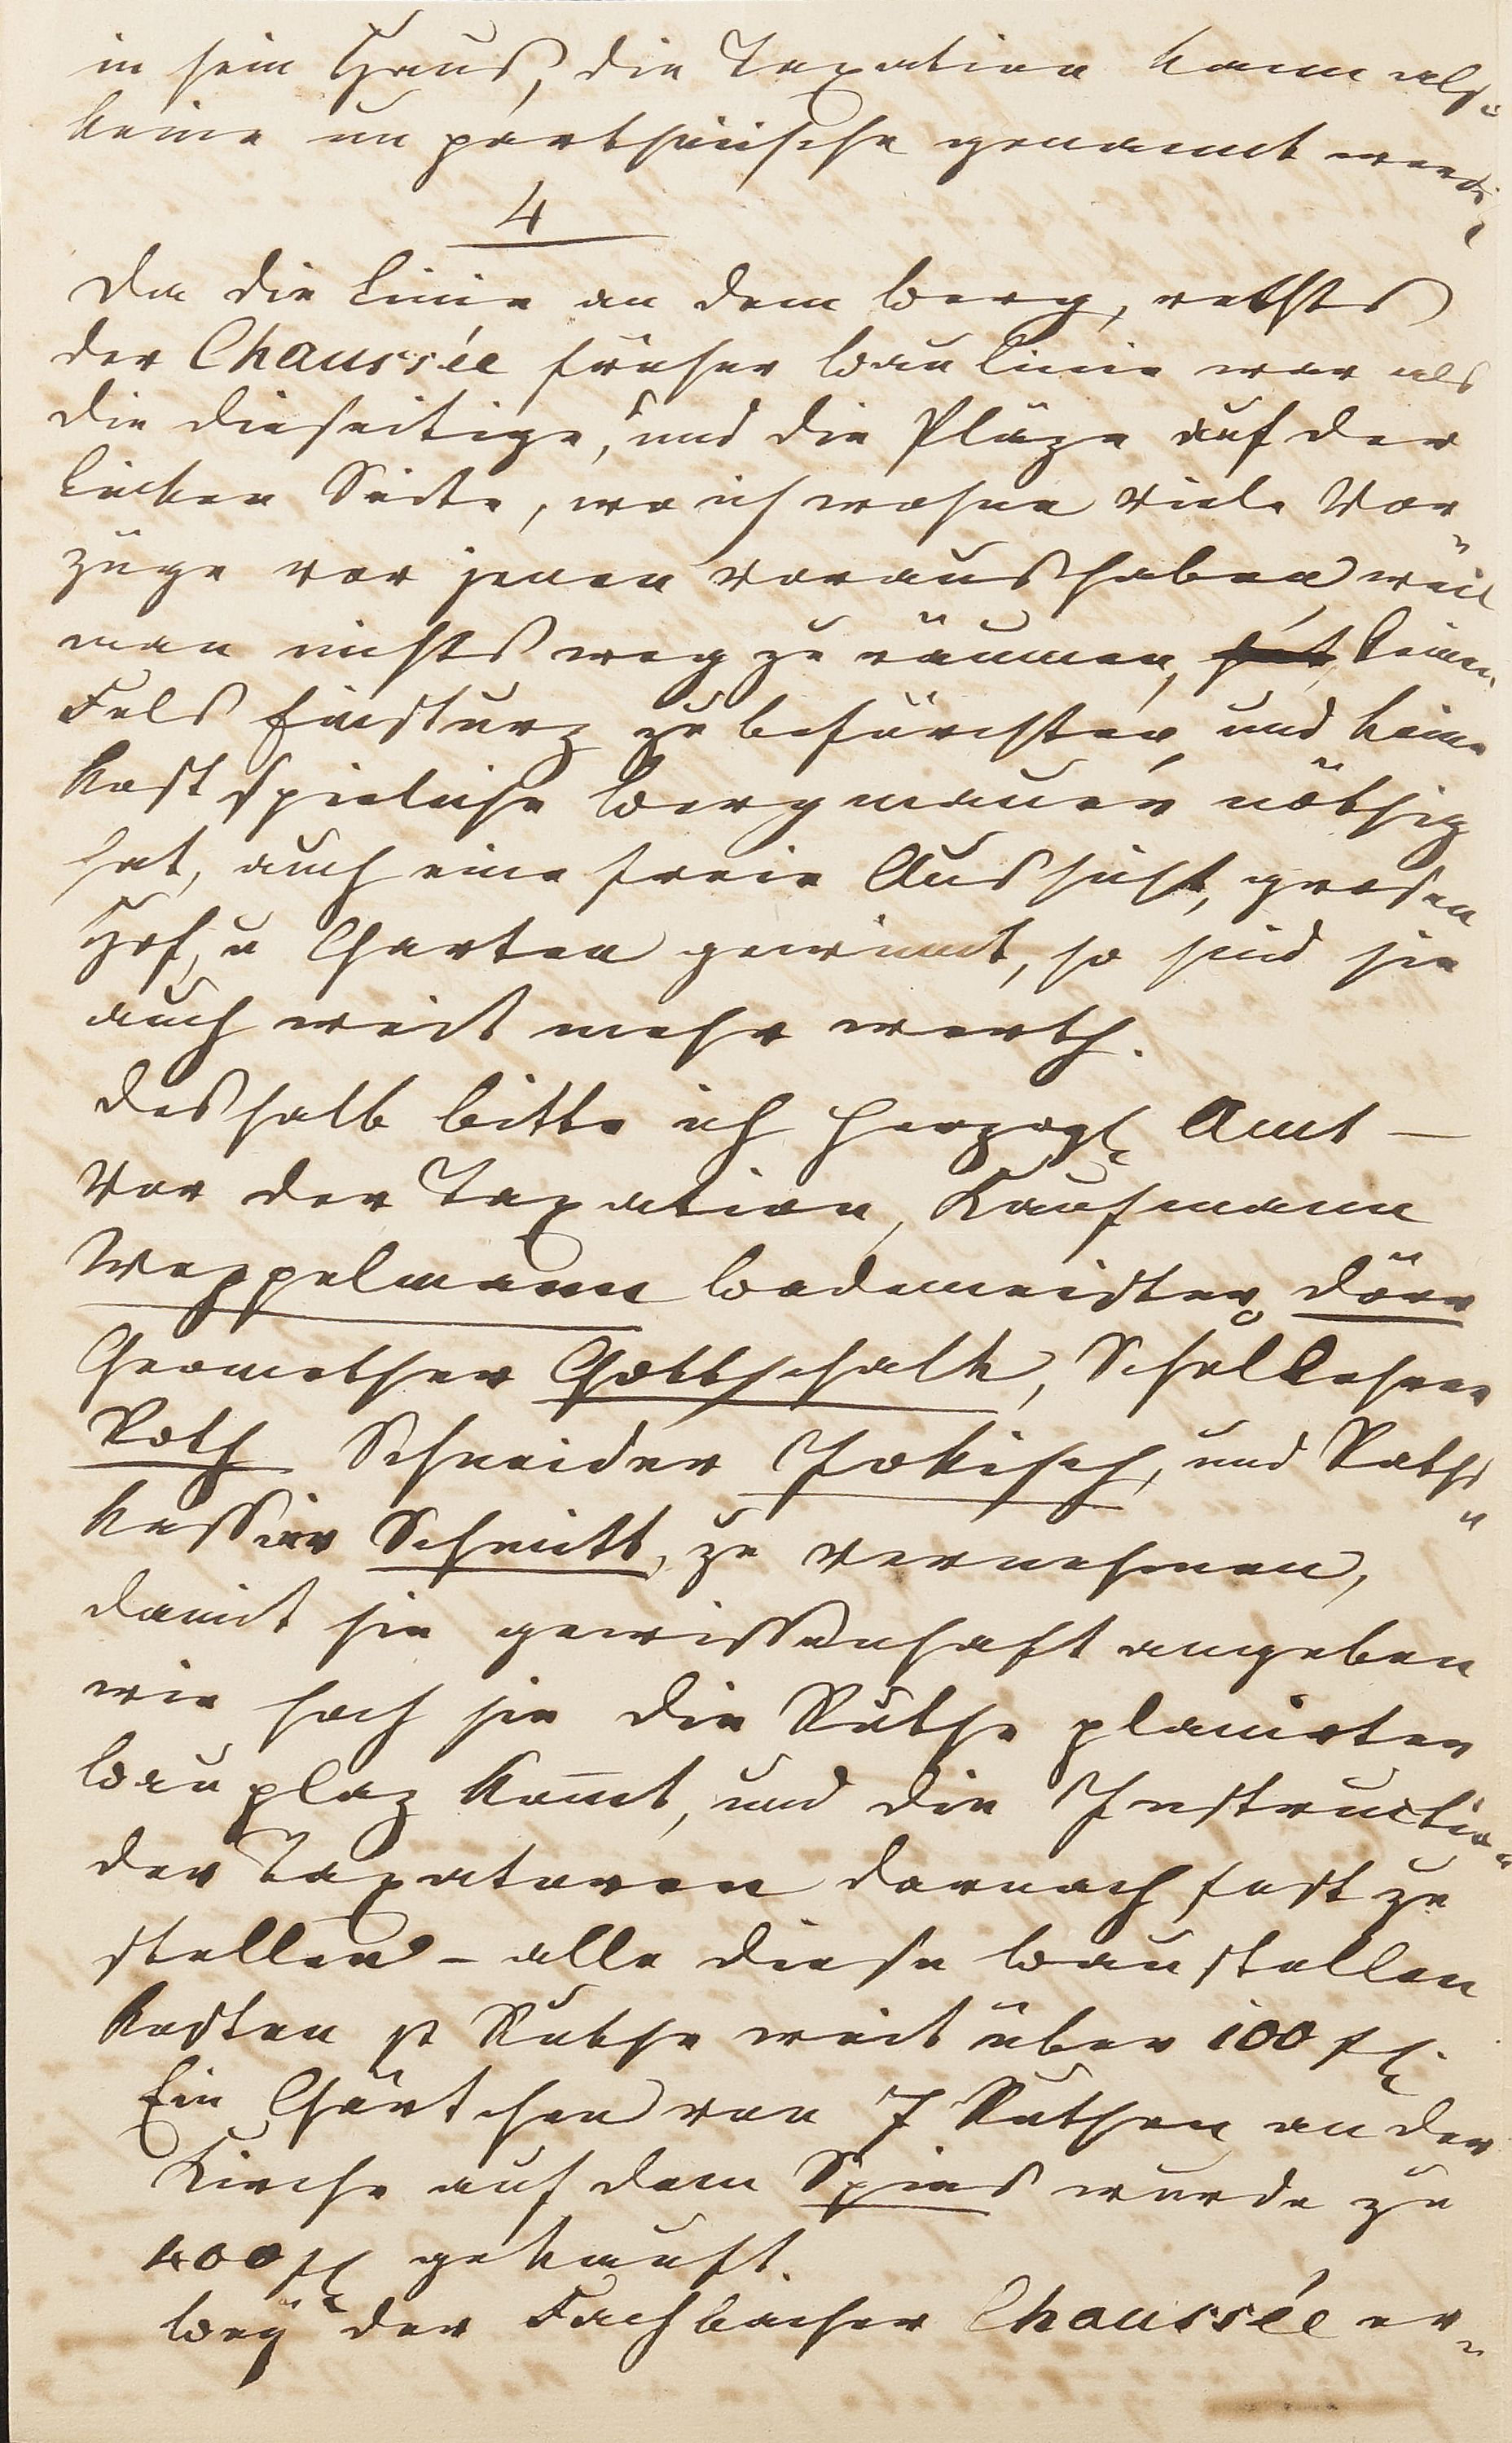 in sein Haus, die Taxation kann also
keine un partheiische genannt werden,
4
Da die Linie an dem Berg, rechts
der Chaussée früher Bau Linie war als
die dieseitige, und die Pläze auf der
Lincken Seite, wo ich wohne viele Vor-
züge vor jenen voraus haben, weil
man nichts weg zu räumen, hat, keinen
Fels Einsturz zu befürchten, und keine
kostspieliche Bergmauern nöthig
hat, auch eine freie Aussicht, grosen
Hof, u Garten gewinnt, so sind sie
auch weit mehr werth.
Deshalb bitte ich Herzogl Amt –
Vor der Taxation, Kaufmann
Weppelmann Bademeister Dörr
Geomether Gottschalk, Schullehrer
Roth Schneider Jokisch, und Raths-
kassier Schmitt, zu vernehmen,
damit sie gewissenhaft angeben
wie hoch sie die Ruthe planirter
Bauplaz kom̄t, und die Instruction
der Taxatoren darnach fest zu
stellen – alle diese Baustellen
kosten pr Ruthe weit über 100 fl.
Ein Gärtchen von 7 Ruthen an der
Kirche auf dem Spies wurde zu
400 fl gekauft.
Bey der Fachbacher Chaussée er-